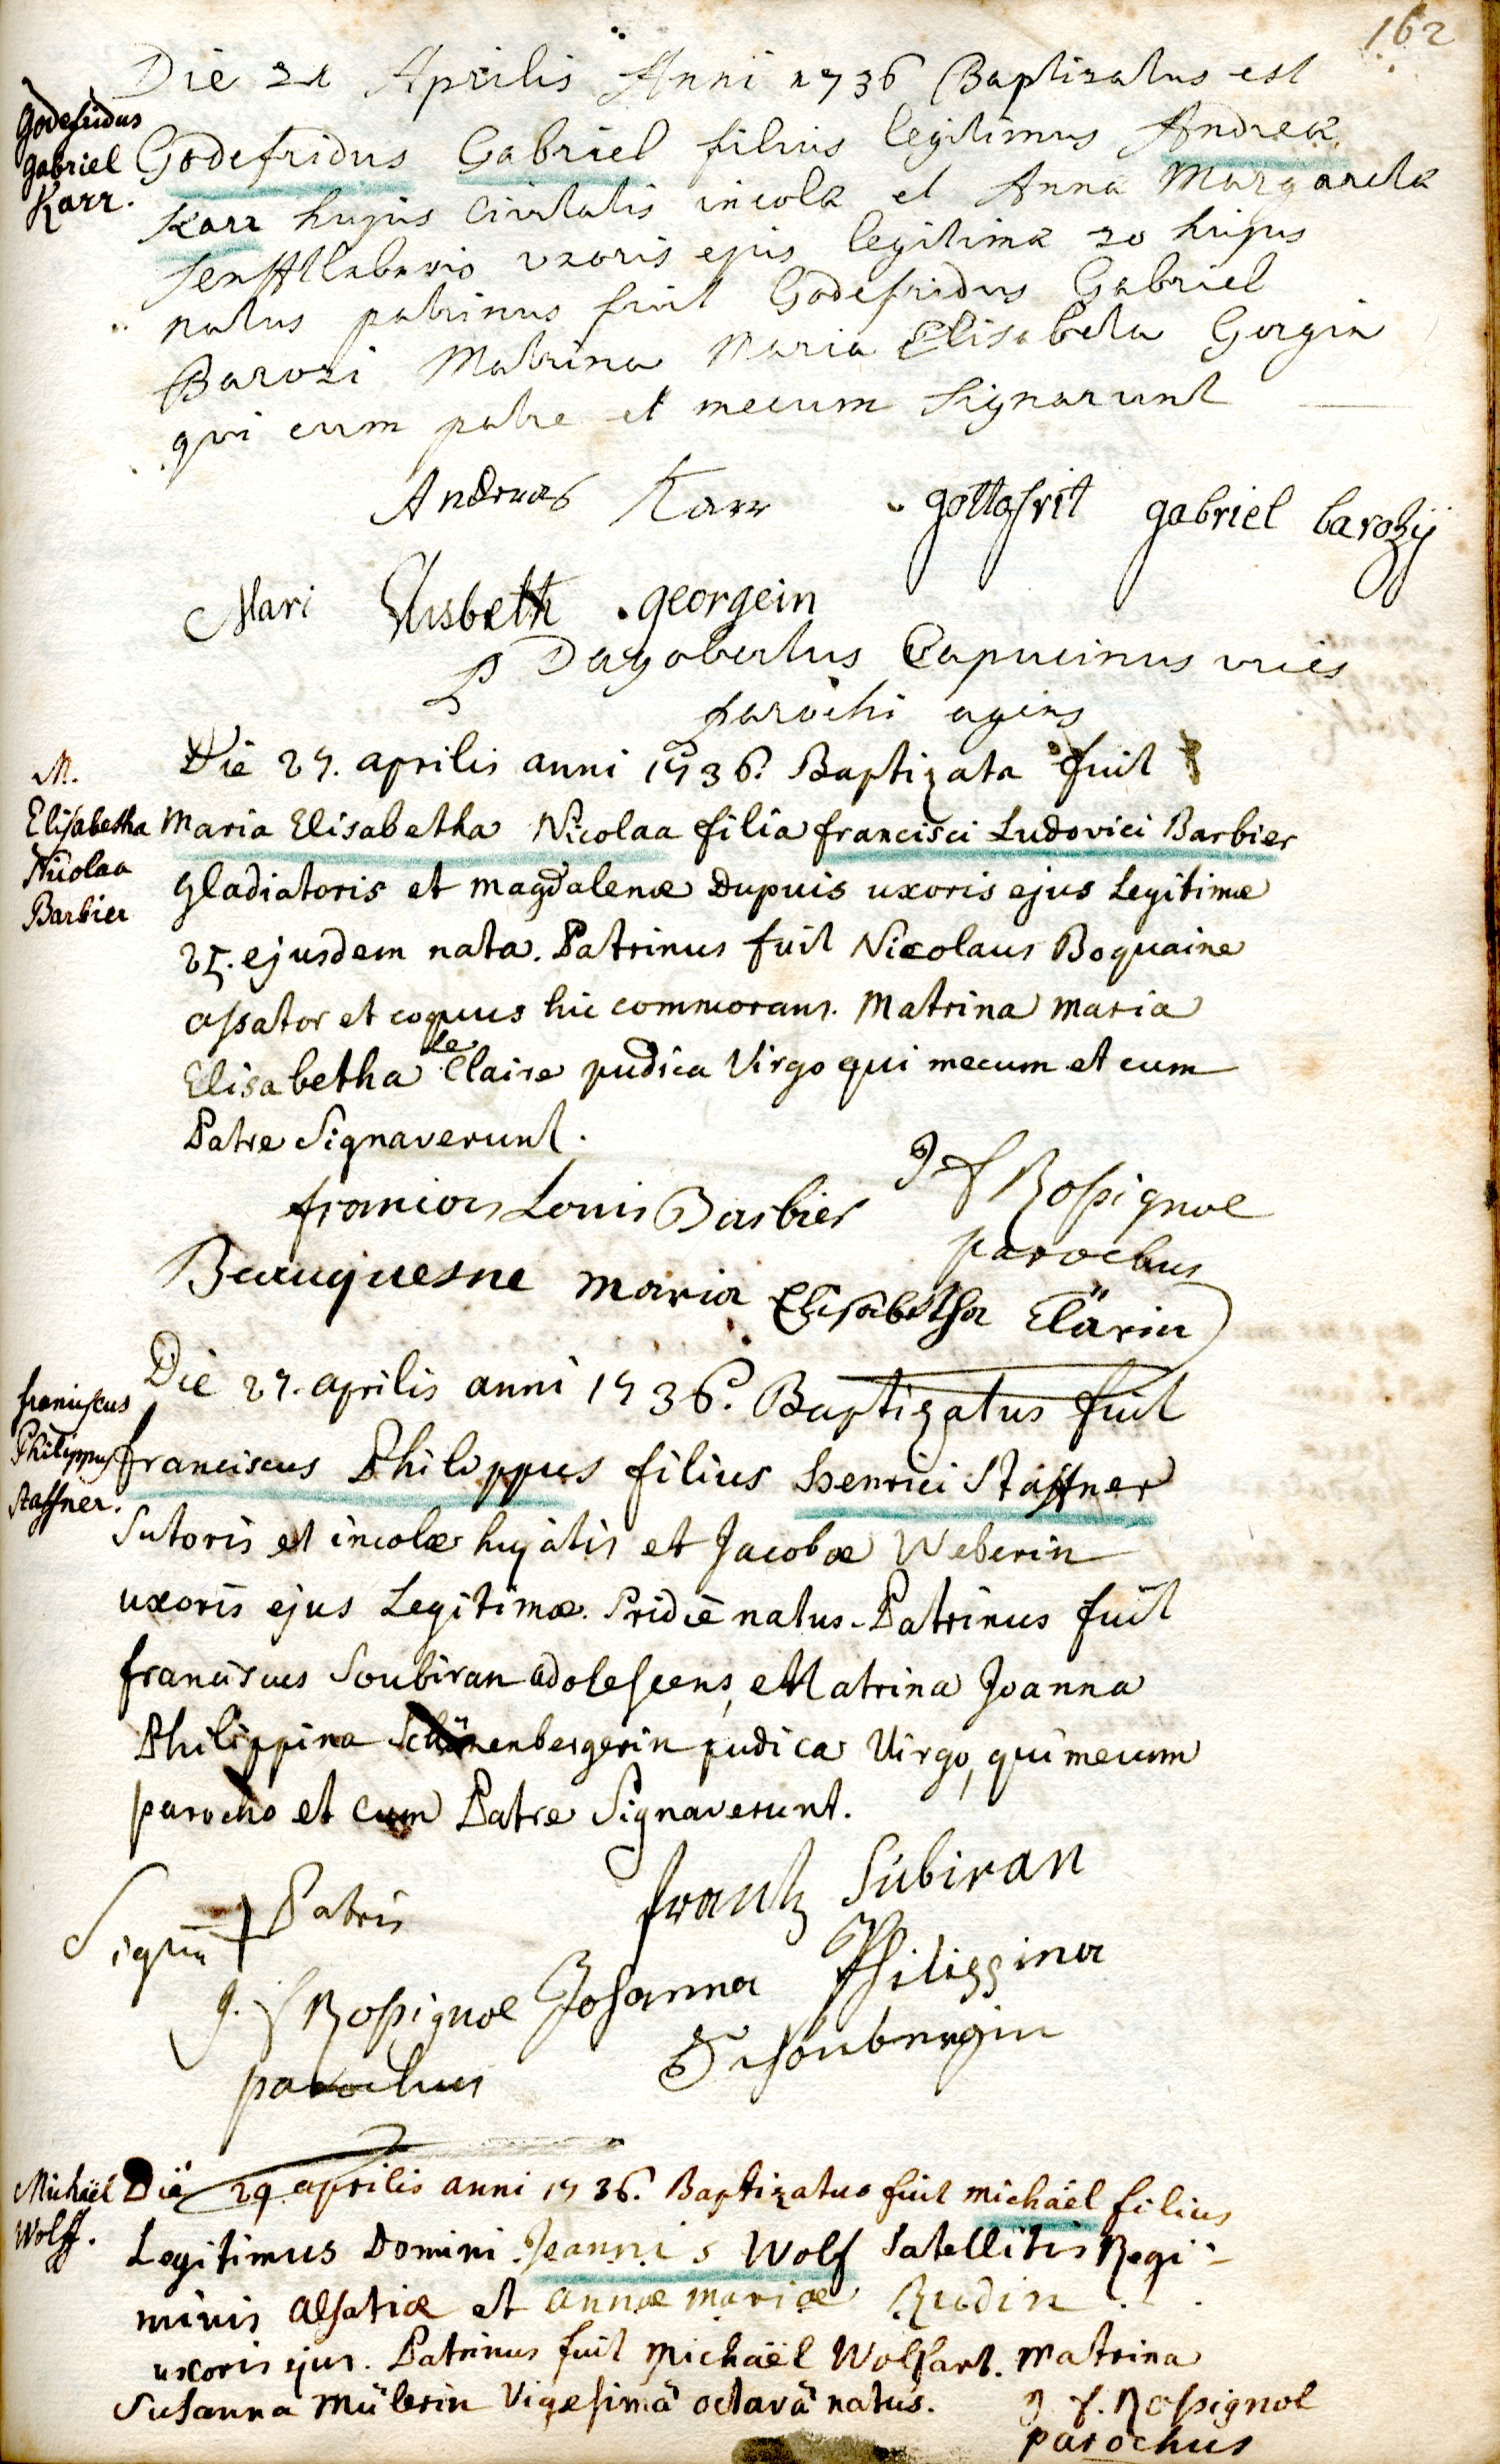 162
Die 21 Aprilis Anni 1736 Baptizatus est
Godefridus
Gabriel
Karr.
Godefridus Gabriel filius legitimus Andreæ
Karr hujus Civitatis incolæ et Anna Margaretæ
uxoris ejus legitimæ 20 hujus
natus patrinus fuit Godefridus Gabriel
Barozi Matrina Maria Elisabeta Gergin
qui cum patre et mecum signarunt
Andreas Karr gottofrit gabriel barozij
Mari Elisbeth georgein
P Dagobertus Capucinus vices
parochi agens
M.
Elisabetha
Nicolaa
Barbier
Die 27. aprilis anni 1736. Baptizata fuit
Maria Elisabetha Nicolaa filia francisci Ludovici Barbier
gladiatoris et magdalenæ Dupuis uxoris ejus Legitimæ
25. ejusdem nata. Patrinus fuit Nicolaus Boquaine
assator et coquus hic commorans. Matrina maria
Elisabetha le Claire pudica Virgo qui mecum et cum
Patre Signaverunt.
francois Louis Barbier J f Rossignol
parochus
Beauquesne maria Elisabetha Clärin
franciscus
Philippus
Staffner.
Die 27. aprilis anni 1736. Baptizatus fuit
franciscus Philippus filius henrici Staffner
Sutoris et incolæ hujatis et Jacobæ Weberin
uxoris ejus Legitimæ. Pridie natus. Patrinus fuit
franciscus Soubiran adolescens, Matrina Joanna
Philippina Schönenbergerin pudica Virgo, qui mecum
parocho et cum Patre Signaverunt.
Signum + Patris frantz Subiran
J. f Rossignol Johanna Philippina
parochus Schonbergin
Michaël
Wolff.
Die 29 aprilis anni 1736. Baptizatus fuit michaël filius
Legitimus Domini Jeannis Wolf Satellitis Regi-
minis alsatiæ et annæ mariæ Rudin
uxoris ejus. Patrinus fuit Michaël Wolfart. Matrina
Susanna Mülerin Vigesimâ octavâ natus. J f. Rossignol
parochus